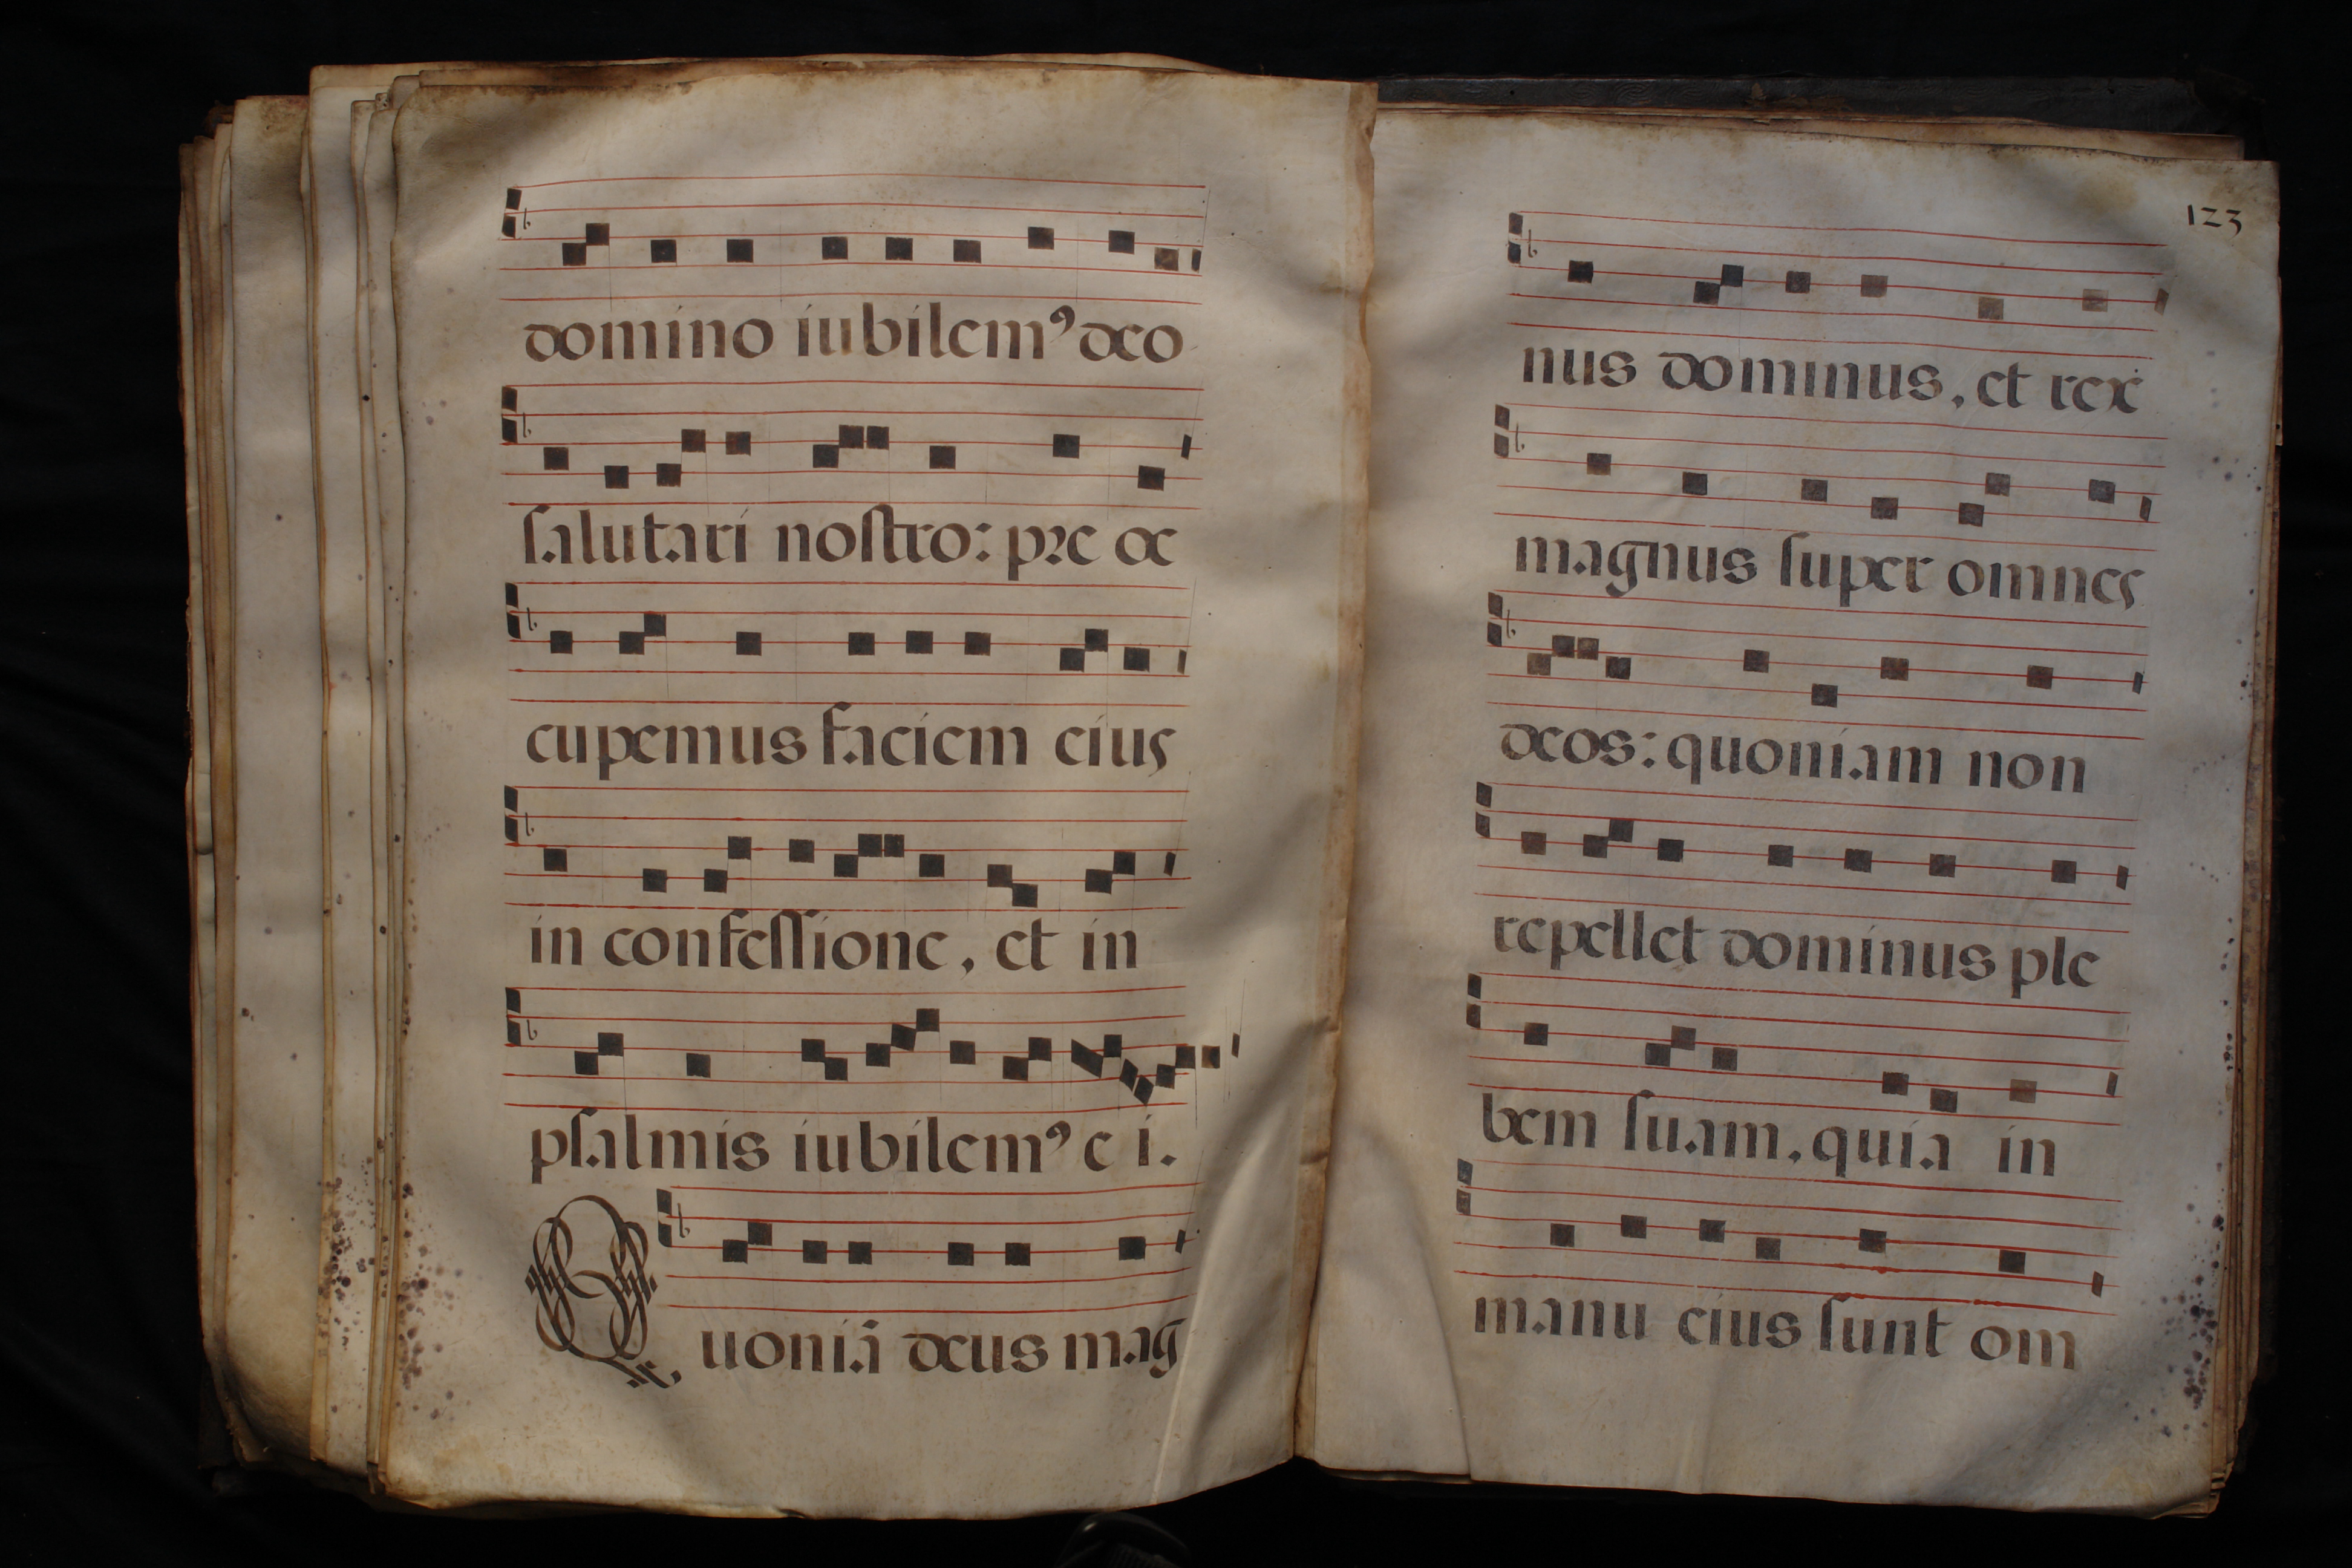 domino iubilemꝰ deo
ſalutari noſtro: pꝛe oc
cupemus faciem eius
in confeſſione, et in
pſalmis iubilemꝰ e i.
Quoniā deus mag
123
nus dominus, et rex
magnus ſuper omnes
deos: quoniam non
repellet dominus ple
bem ſuam, quia in
manu eius ſunt om